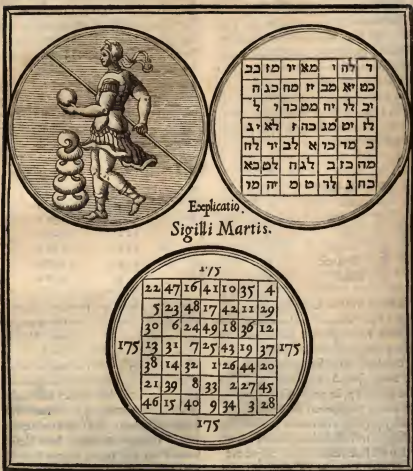 ד לה י מא יו מז כב
כט יא מב יז מח כג ה
יב לו יח מט כד ו ל
לז יט מג כה ז לא יג
כ מד כו א לב יד לח
מה כז ב לג ח לט כא
כח ג לד ט מ יה מו
Explicatio.
Sigilli Martis.
175
22 47 16 41 10 35 4
5 23 48 17 42 11 29
30 6 24 49 18 36 12
175 13 31 7 25 43 19 37 175
38 14 32 1 26 44 20
21 39 8 33 2 27 45
46 15 40 9 34 3 28
175